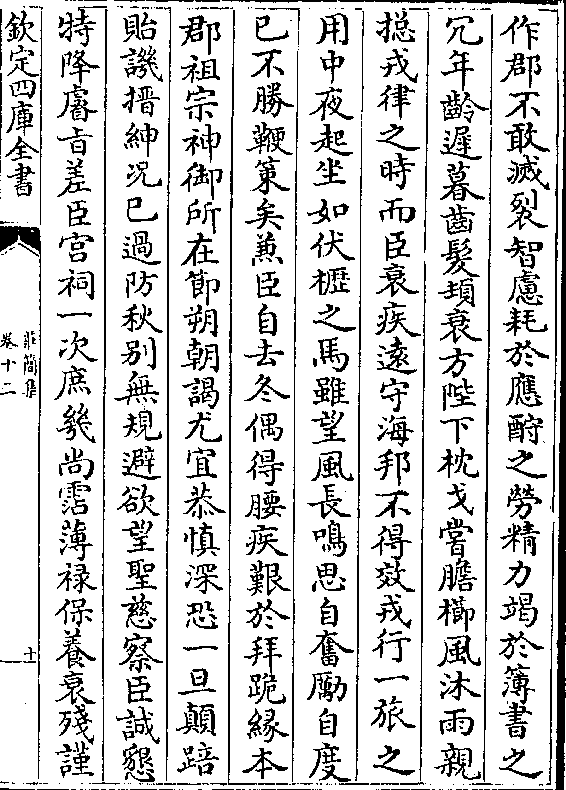 作郡不敢滅裂智慮耗於應酧之勞精力竭於簿書之
冗年齡遲暮齒髮頽衰方陛下枕戈嘗膽櫛風沐雨親
搃戎律之時而臣衰疾遠守海邦不得效戎行一旅之
用中夜起坐如伏櫪之馬雖望風長鳴思自奮勵自度
已不勝鞭䇿矣兼臣自去冬偶得腰疾艱於拜跪緣本
郡祖宗神御所在節朔朝謁尤宜恭慎深恐一旦顛踣
貽譏搢紳况已過防秋别無規避欲望聖慈察臣誠懇
特降睿㫖差臣宫祠一次庶幾尚霑薄禄保養衰殘謹
欽定四庫全書
莊簡集
卷十二
十